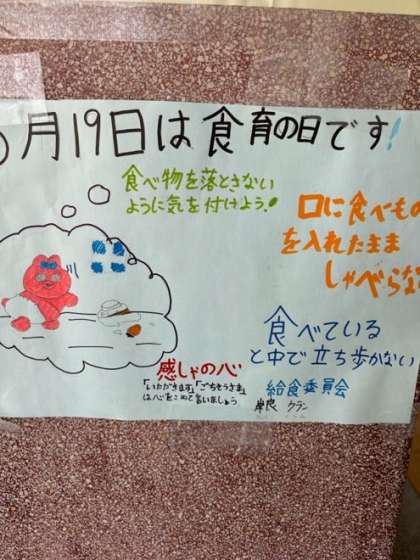 月19日は食育の日です!
食べ物を落とさない
ように気を付けよう!
口に食べもの
を入れたまま
しゃべらな
食べている
と中で立ち歩かない
感しゃの心
「いただきます」「ごちそうさま」
は心をこめて言いましょう
給食委員会